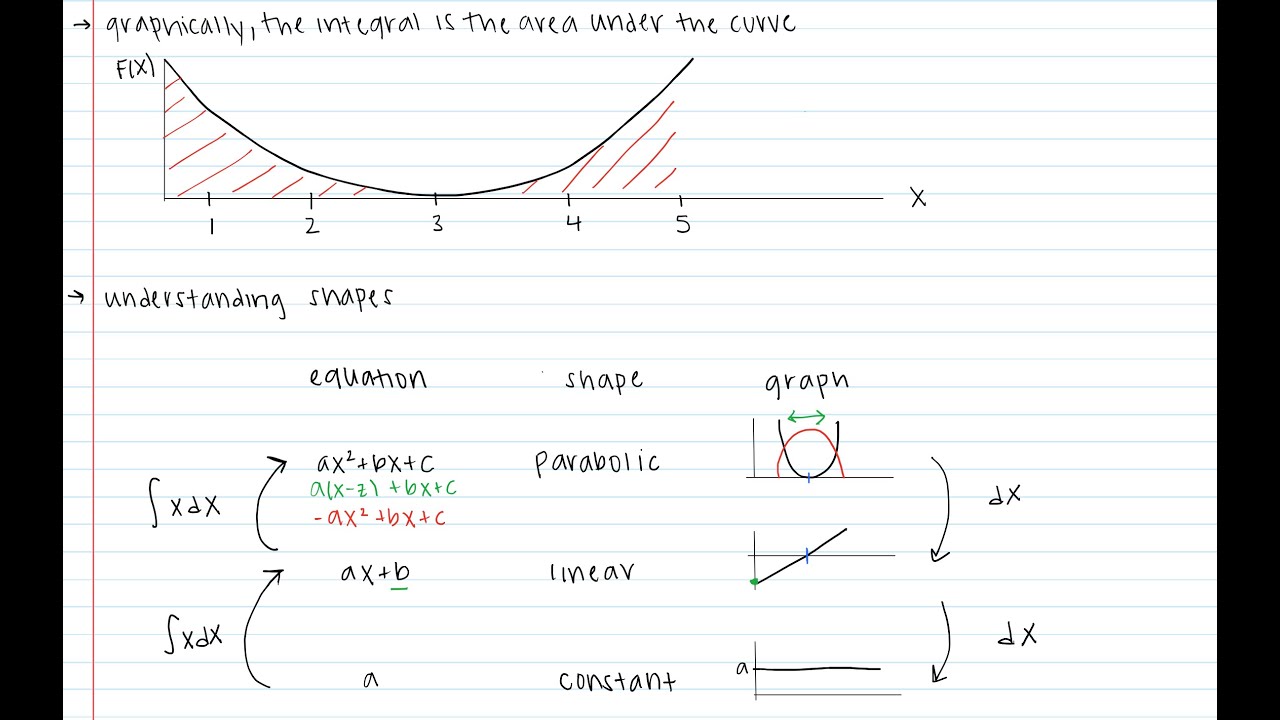 → graphically, the integral is the area under the curve
F(X)
X
1 2 3 4 5
→ understanding shapes
equation shape graph
ax²+bx+c parabolic
a(x-z) +bx+c
∫xdx dx
-ax²+bx+c
ax+b linear
∫xdx dx
a constant a